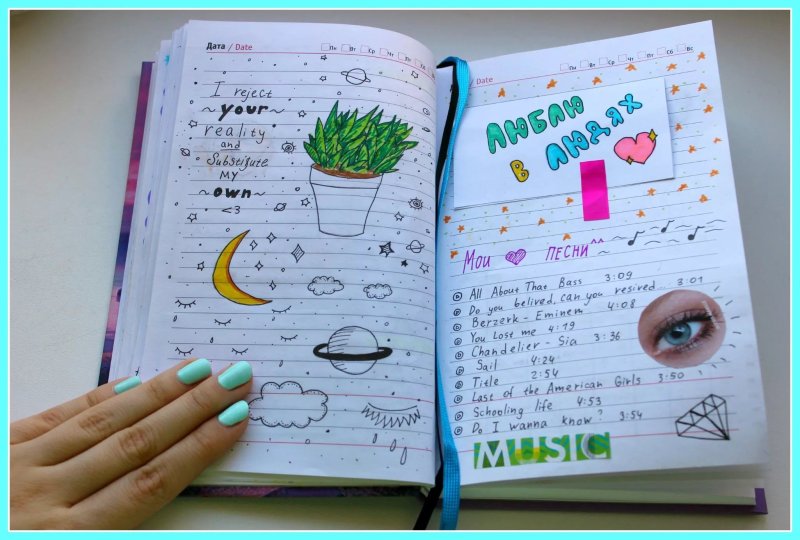 Дата / Date
Пн Вт Ср Чт
I reject
~your~
reality
and
Substitute
MY
~own~
<3
Date
Пн Вт Ср Чт Пт Сб Вс
ЛЮБЛЮ
В ЛЮДЯХ
Мои ПЕСНИ
All About That Bass 3:09
Do you belived, can you resived... 3:01
Berzerk - Eminem 4:08
You Lost me 4:19
Chandelier - Sia 3:36
Sail 4:24
Title 2:54
Last of the American Girls 3:50
Schooling life 4:53
Do I wanna know? 3:54
MUSIC